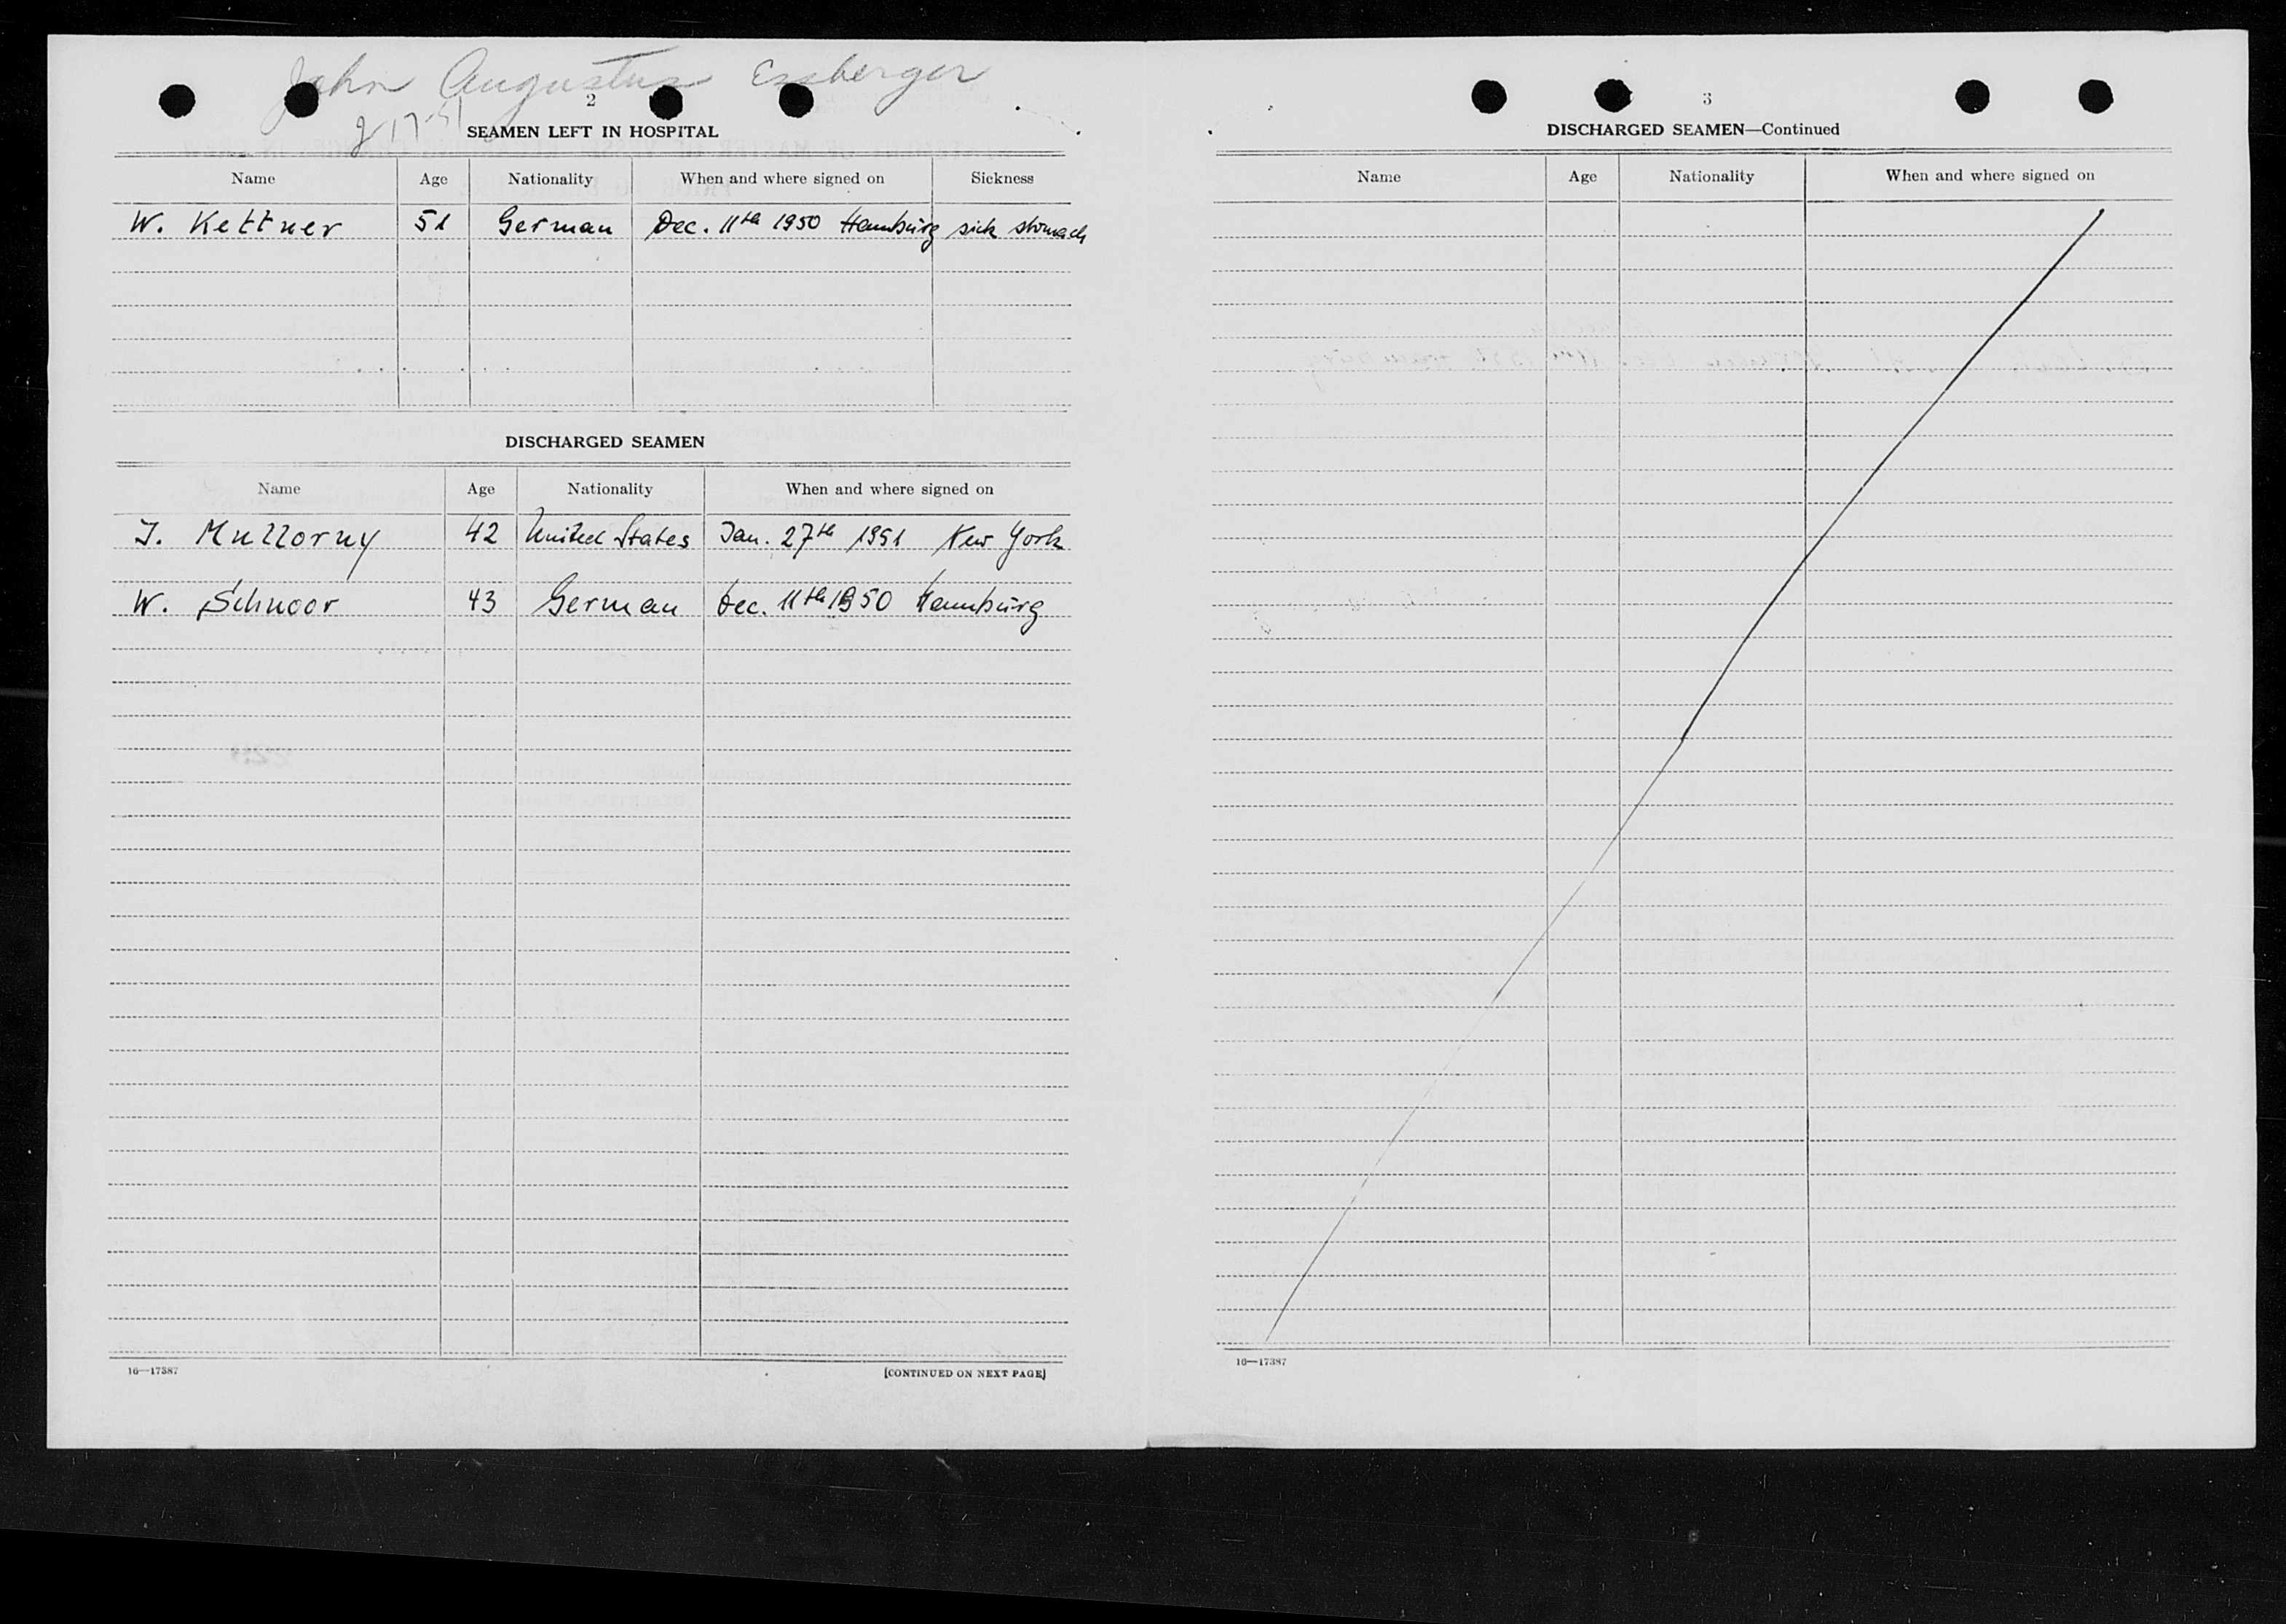 John Augustus Essberger
2
2-17-51
SEAMEN LEFT IN HOSPITAL
Name Age Nationality When and where signed on Sickness
W. Kettner 51 German Dec. 11th 1950 Hamburg sick stomach
DISCHARGED SEAMEN
Name Age Nationality When and where signed on
42 United States Jan. 27th 1951 New York
W. Schnoor 43 German Dec. 11th 1950 Hamburg
16—17387 [CONTINUED ON NEXT PAGE]
3
DISCHARGED SEAMEN—Continued
Name Age Nationality When and where signed on
16—17387